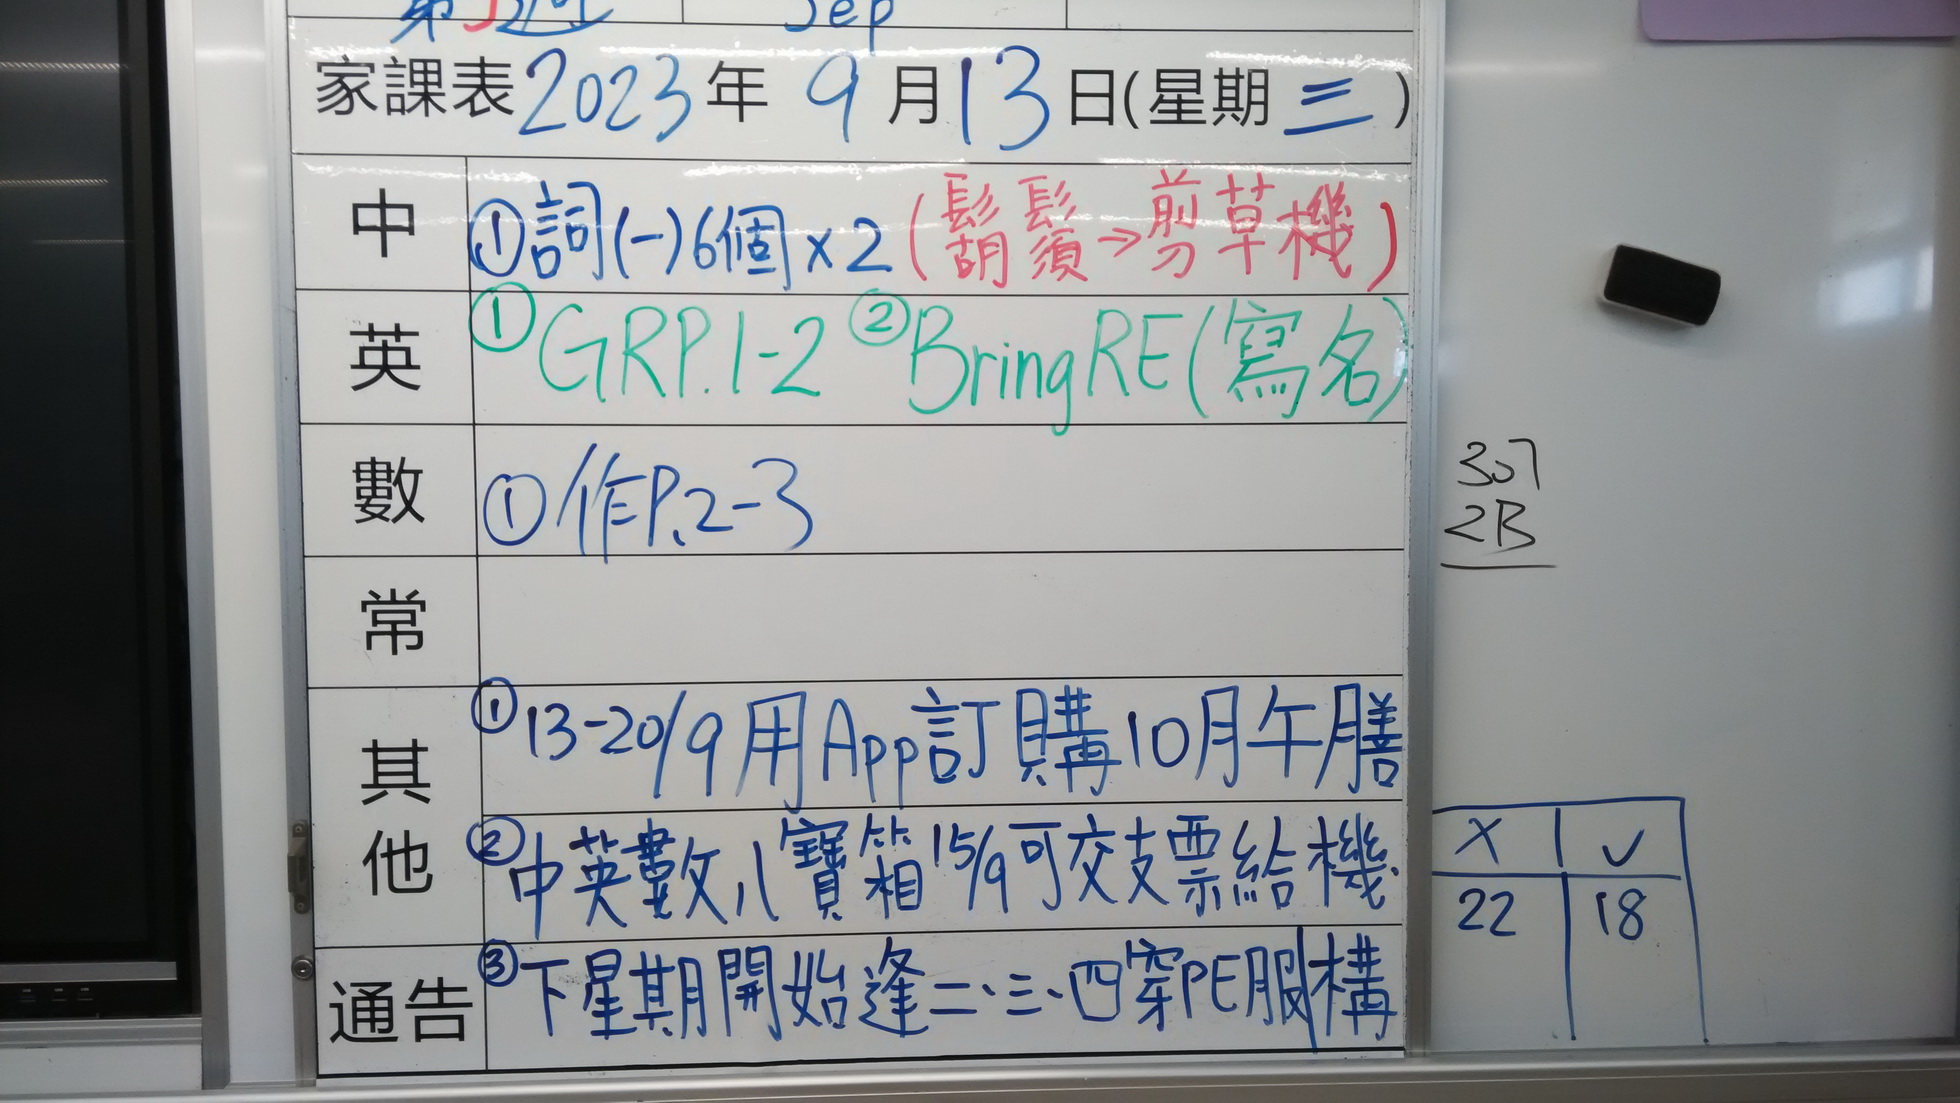 Sep
家課表2023年9月13日(星期三)
中
①詞(一)6個×2(鬍鬚→剪草機)
英
①GRP.1-2 ②BringRE(寫名)
數
①作P.2-3
常
其他
①13-20/9用App訂購10月午膳
②中英數八寶箱15/9可交支票給機構
通告
③下星期開始逢二、三、四穿PE服
307
2B
X ✓
22 18